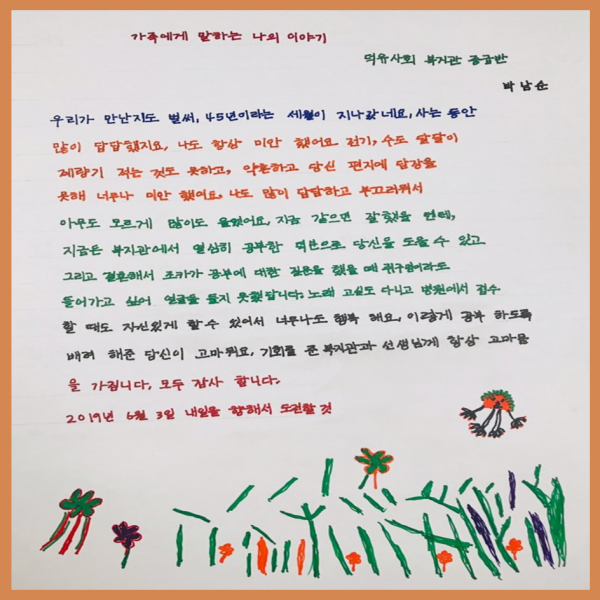 가족에게 말하는 나의 이야기
덕유사회 복지관 중급반
박남순
우리가 만난지도 벌써, 45년이라는 세월이 지나갔네요, 사는 동안
많이 답답했지요, 나도 항상 미안 했어요 전기, 수도 달달이
계량기 적는 것도 못하고, 약혼하고 당신 편지에 답장을
못해 너무나 미안 했어요, 나도 많이 답답하고 부끄러워서
아무도 모르게 많이도 울었어요, 지금 같으면 잘했을 텐데,
지금은 복지관에서 열심히 공부한 덕분으로 당신을 도울 수 있고
그리고 결혼해서 조카가 공부에 대한 질문을 했을 때 쥐구멍이라도
들어가고 싶어 얼굴을 들지 못했답니다; 노래 교실도 다니고 병원에서 접수
할 때도 자신있게 할 수 있어서 너무나도 행복 해요, 이렇게 공부 하도록
배려 해준 당신이 고마워요, 기회를 준 복지관과 선생님께 항상 고마움
을 가집니다, 모두 감사 합니다;
2019년 6월 3일 내일을 향해서 도전할 것